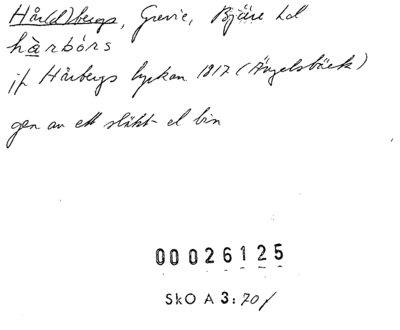 Hår(d)bergs, Grevie, Bjäre hd
hàrbórs
jf Hårbergs lyckan 1817 (Ängelsbäck)
gen av ett släkt- el bin
00026125
SkO A 3:70/